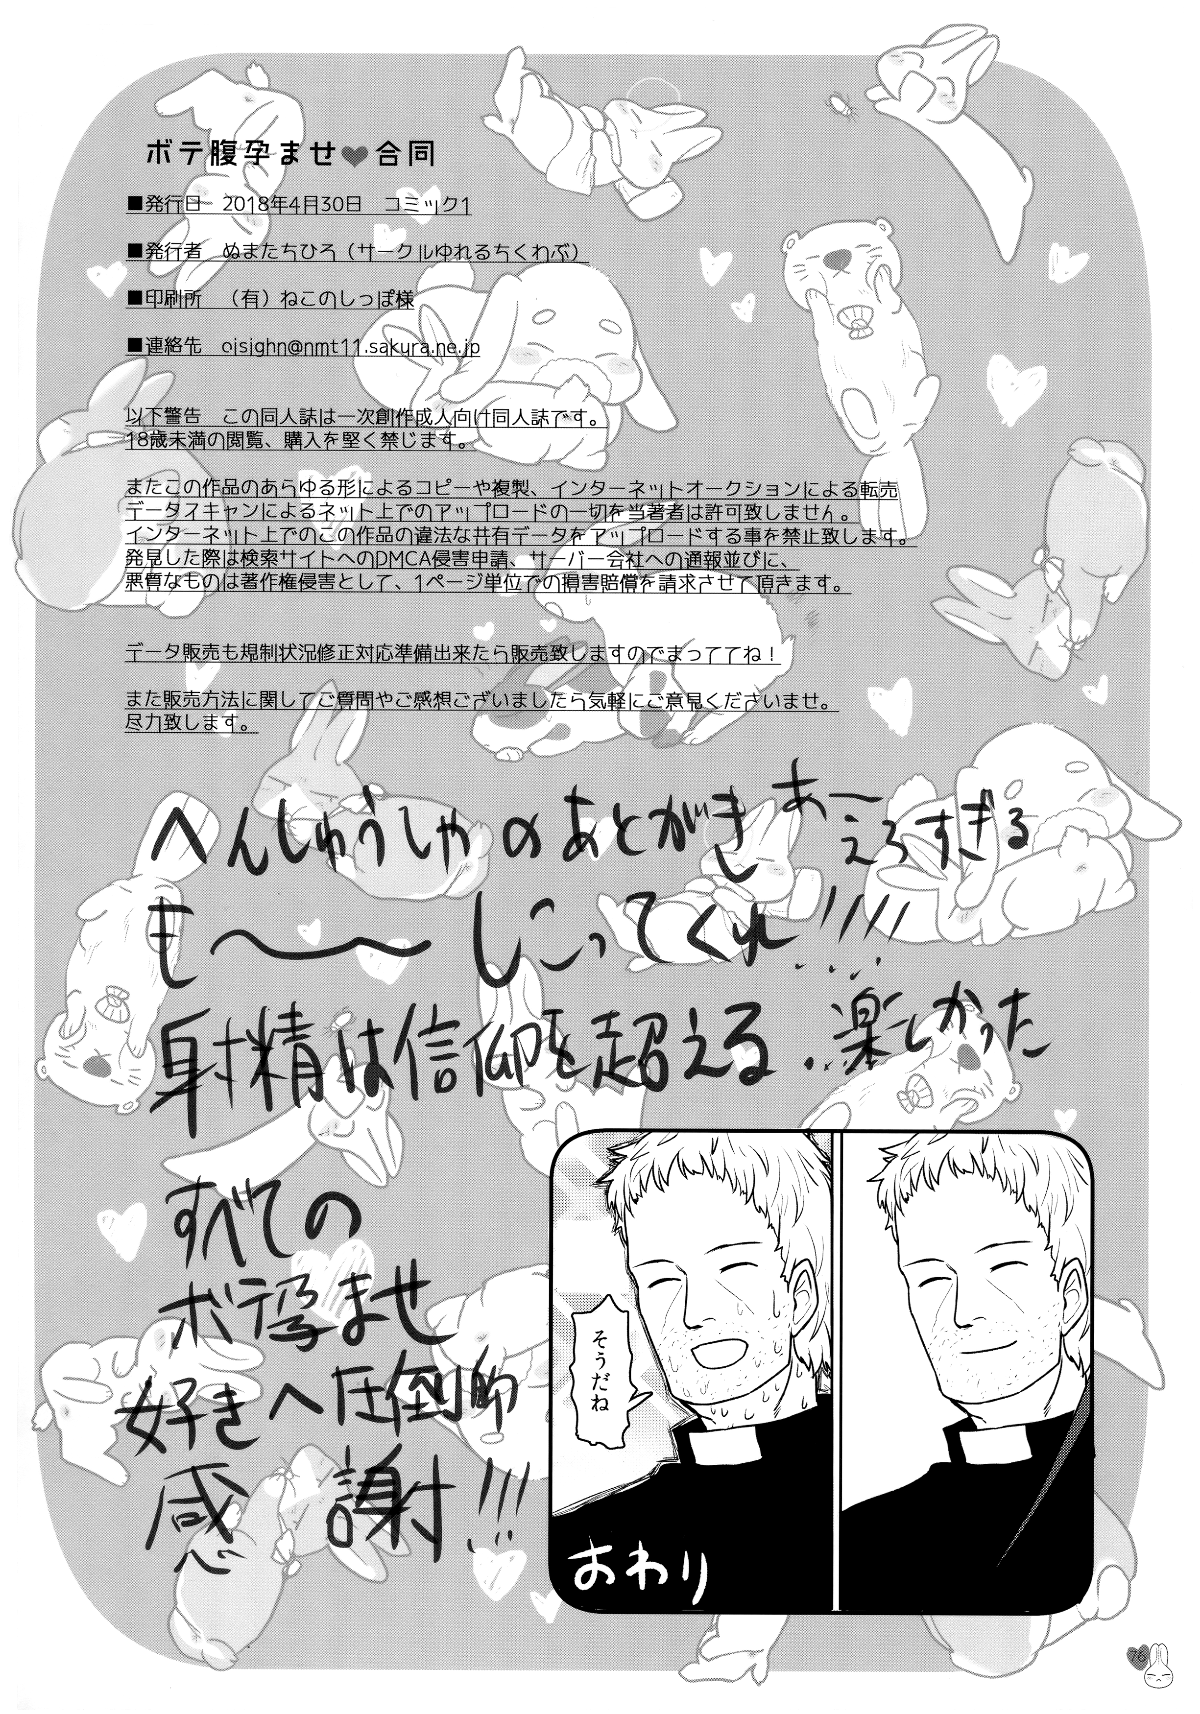 ボテ腹孕ませ♥合同
■発行日　2018年4月30日　コミック1
■発行者　ぬまたちひろ（サークルゆれるちくわぶ）
■印刷所　（有）ねこのしっぽ様
■連絡先　oisighn@nmt11.sakura.ne.jp
以下警告　この同人誌は一次創作成人向け同人誌です。
18歳未満の閲覧、購入を堅く禁じます。
またこの作品のあらゆる形によるコピーや複製、インターネットオークションによる転売
データスキャンによるネット上でのアップロードの一切を当著者は許可致しません。
インターネット上でのこの作品の違法な共有データをアップロードする事を禁止致します。
発見した際は検索サイトへのDMCA侵害申請、サーバー会社への通報並びに、
悪質なものは著作権侵害として、1ページ単位での損害賠償を請求させて頂きます。
データ販売も規制状況修正対応準備出来たら販売致しますのでまっててね！
また販売方法に関してご質問やご感想ございましたら気軽にご意見くださいませ。
尽力致します。
へんしゅうしゃのあとがき
あーえろすぎる
も〜〜しこってくれ!!!!
射精は信仰を超える・楽しかった
すべての
ボテ孕ませ
好きへ圧倒的
感謝!!!
そうだね
おわり
76